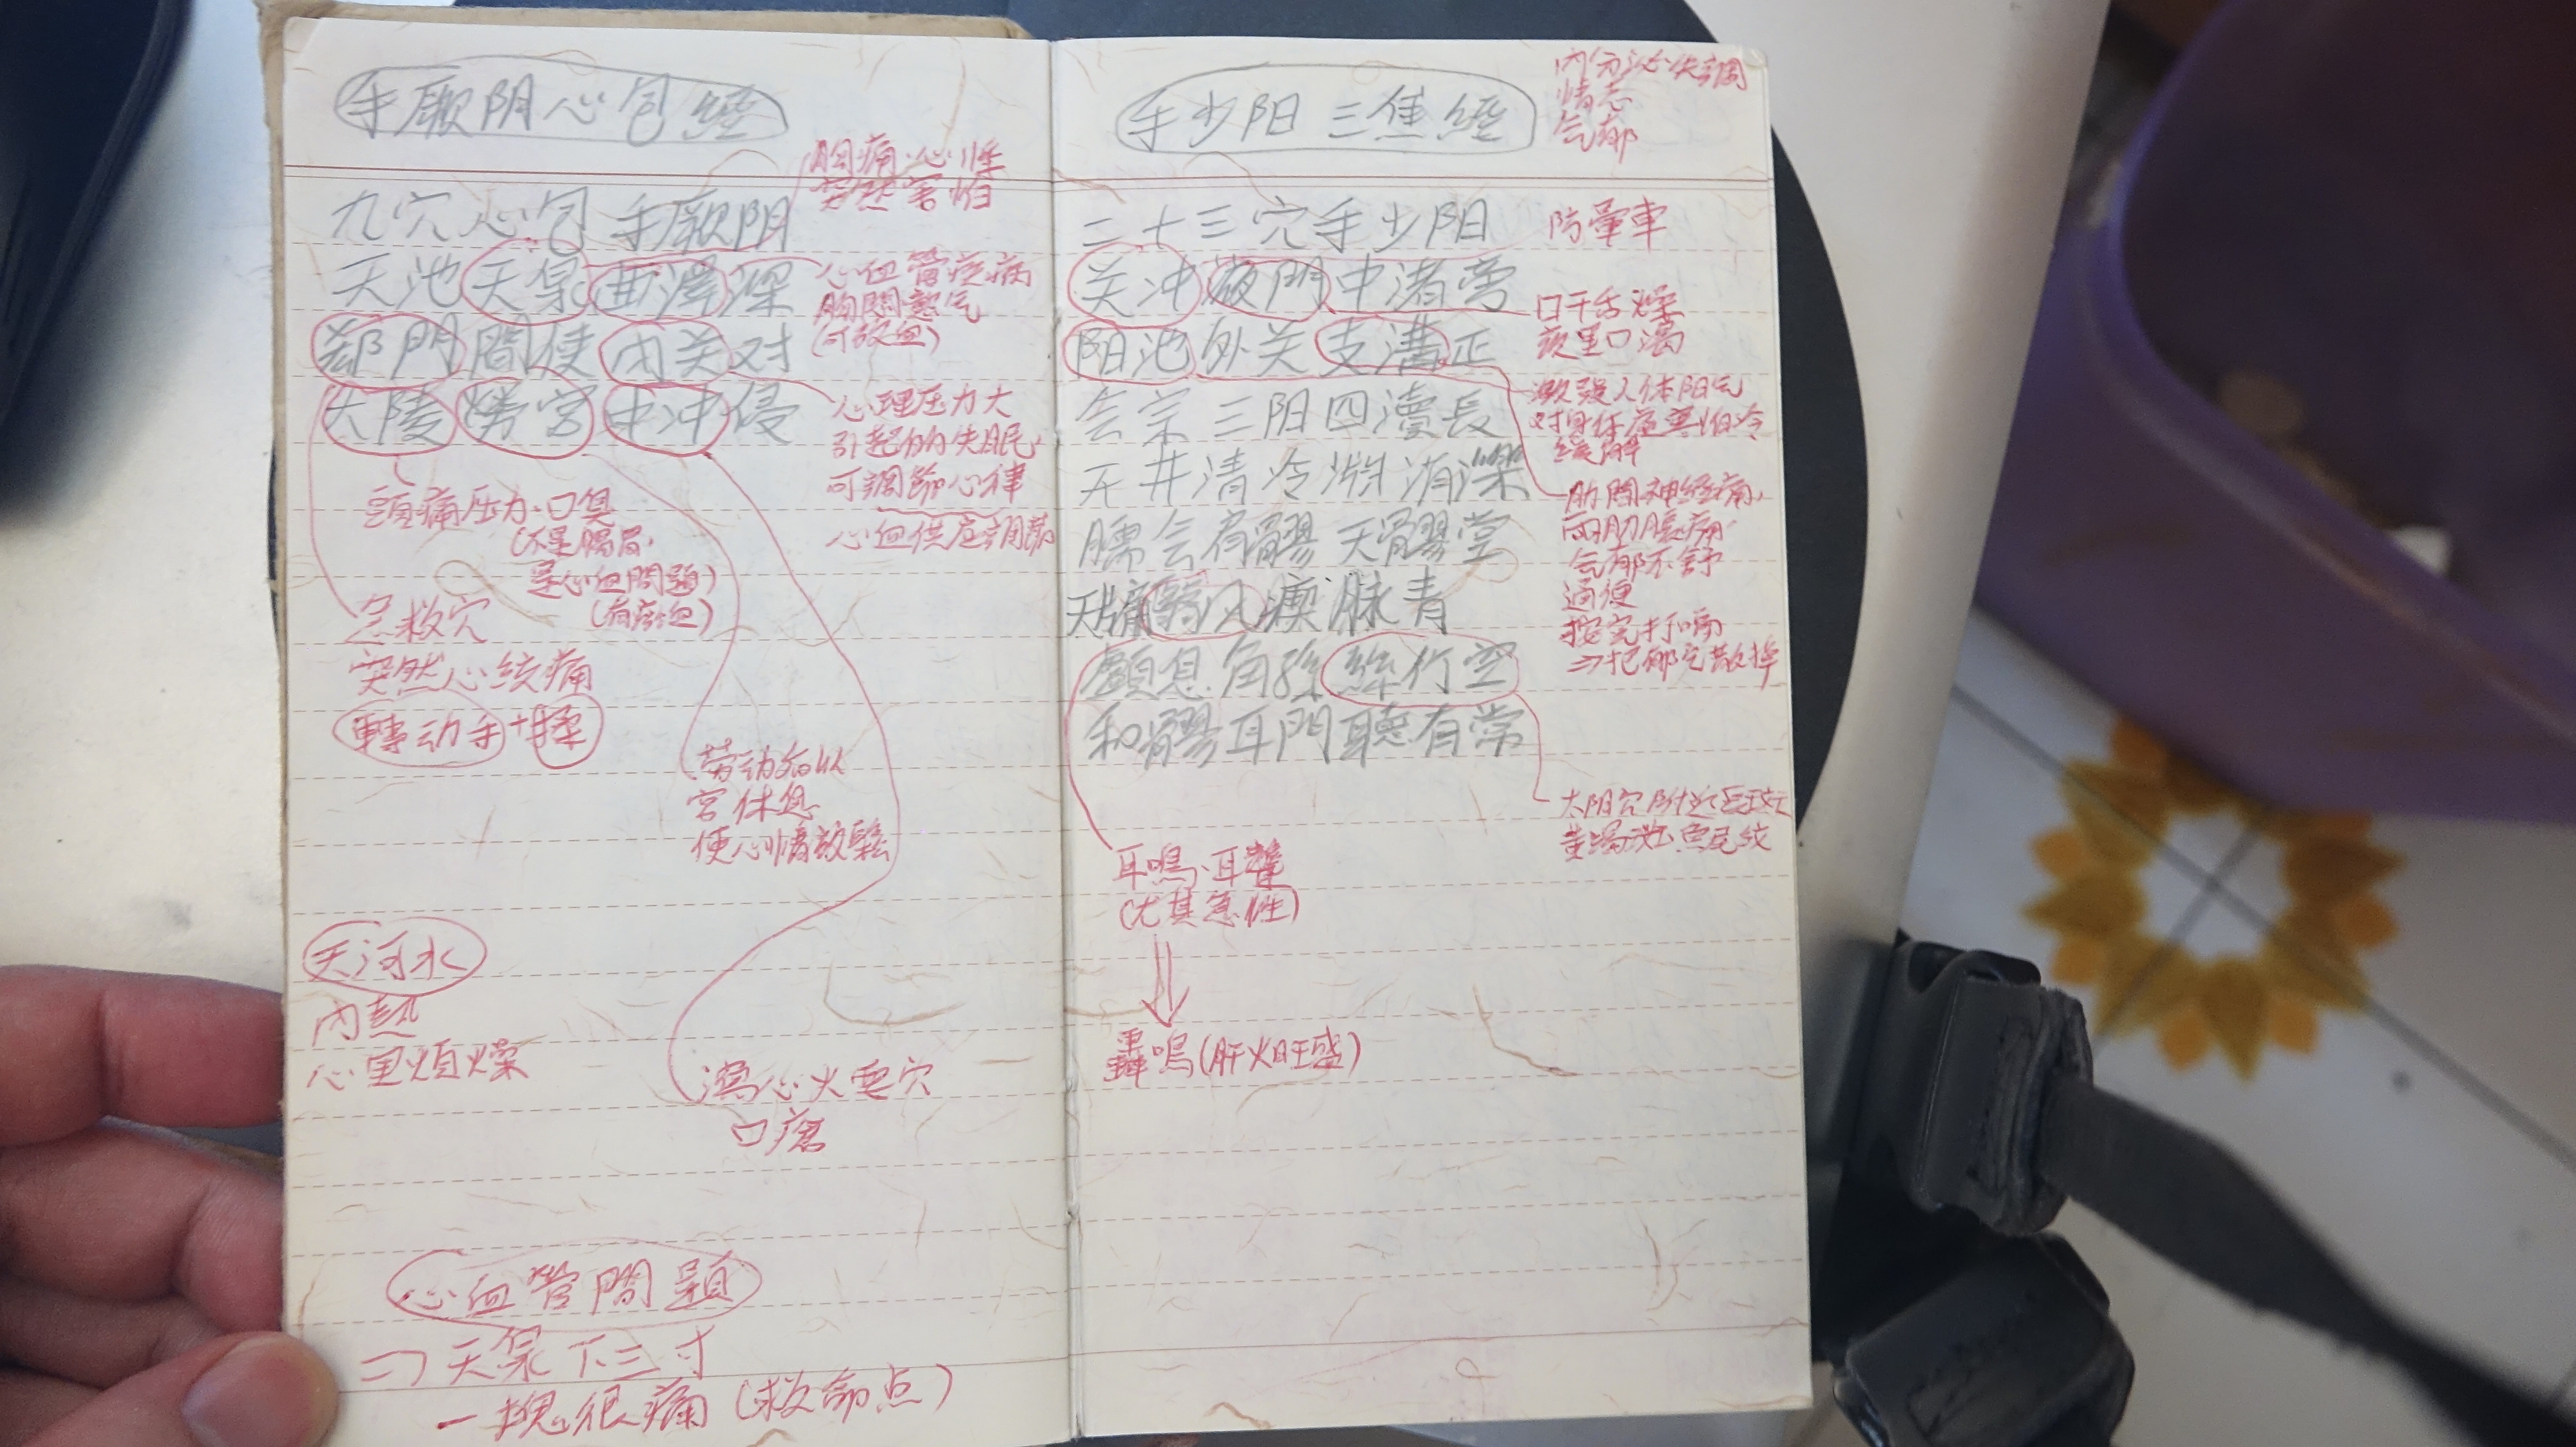 手厥阴心包經
胸痛.心悸
突然害怕
九穴心包手厥阴
天池天泉曲澤深
心血管疾病
胸悶憋气
(可放血)
郄門間使内关对
大陵勞宮中冲侵
心理压力大
引起的失眠,
可調節心律
心血供应
頭痛压力.口臭
(不是腸胃,
是心血問題)
(有瘀血)
急救穴
突然心绞痛
轉动手+揉
劳动
宮休息
便心情放鬆
天河水
内熱
心里煩燥
瀉心火要穴
口瘡
心血管問題
⇒天泉下三寸
一揌很痛(救命点)
手少阳三焦經
内分泌失調
情志
气郁
二十三穴手少阳
防暈車
关冲液門中渚旁
口干舌燥
夜里口渴
阳池外关支溝正
激發人体阳气
对身体虚寒怕冷
缓解
会宗三阳四瀆長
天井清冷渊消濼
肋間神经痛,
两肋脹痛
气郁不舒
通便
按完打嗝
⇒把郁气散掉
臑会肩髎天髎堂
天牖翳风瘈脉青
顱息角孫絲竹空
和髎耳門聽有常
太阳穴附近
黄褐斑魚尾纹
耳鳴、耳聾
(尤其急性)
轟鳴(肝火旺盛)